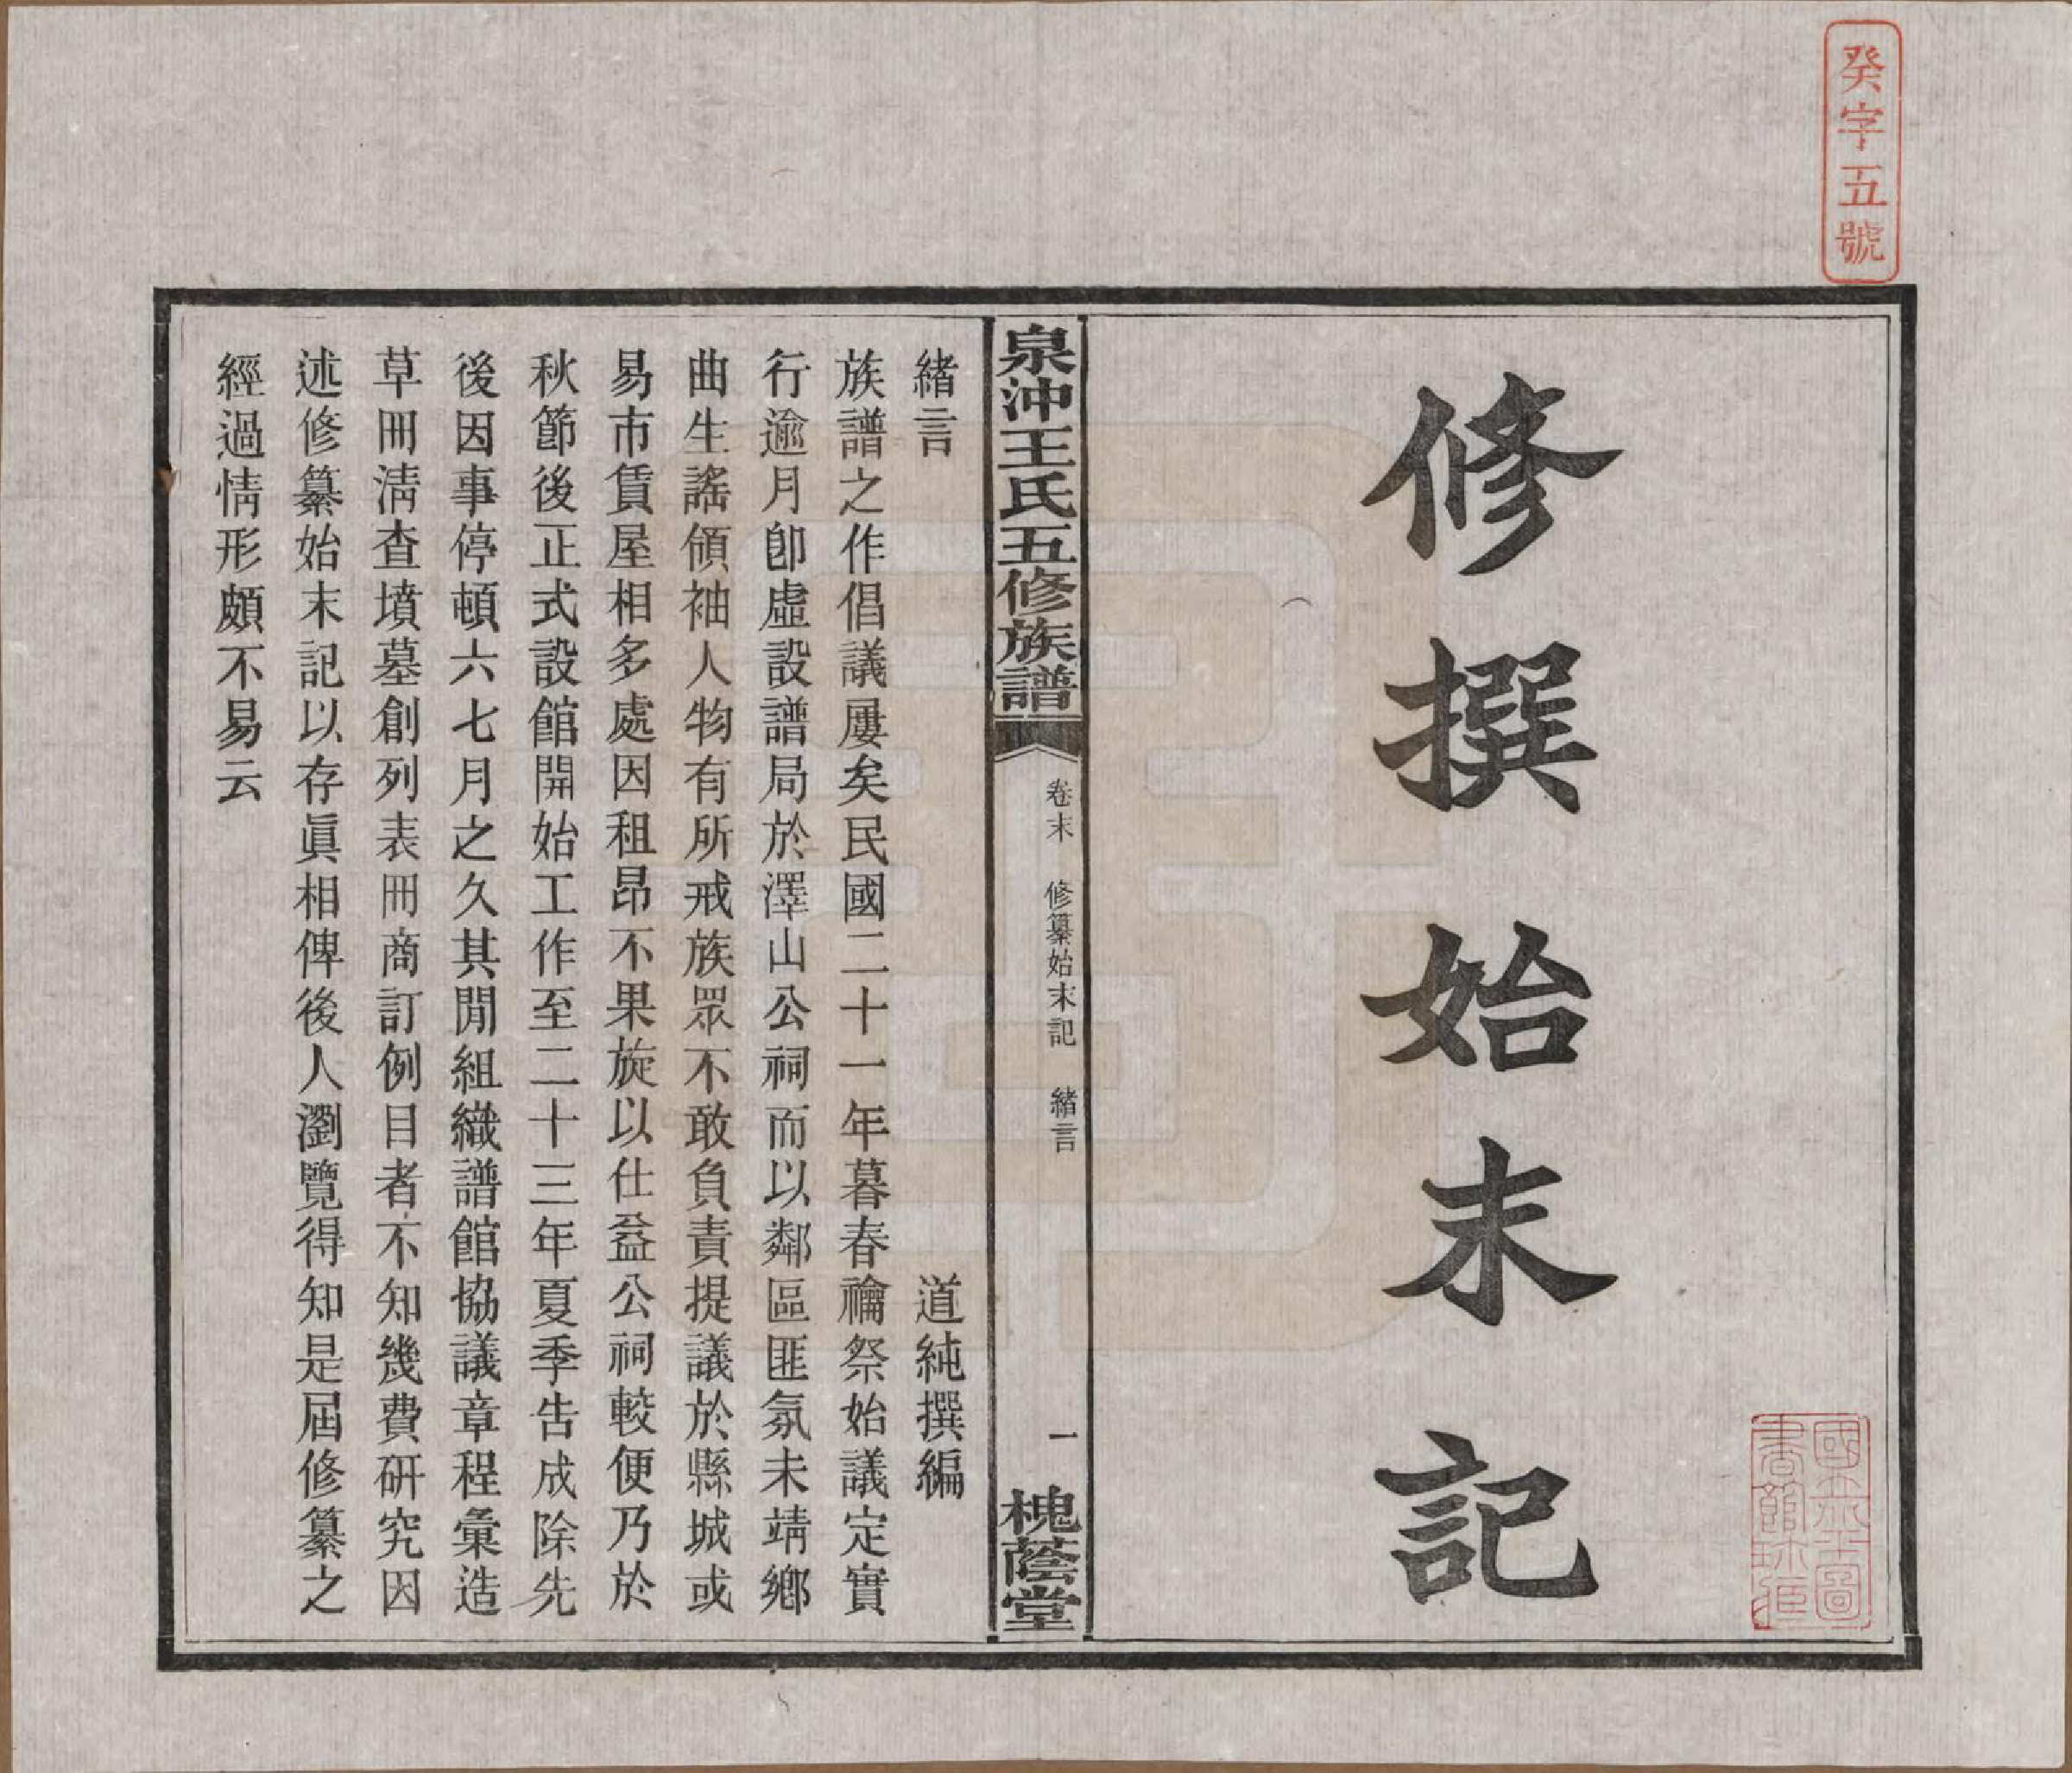 癸字五號
修撰始末記
國立北平圖
書館珍藏
泉沖王氏五修族譜
卷末 修纂始末記 緒言
一
槐蔭堂
緒言 道純撰編
族譜之作倡議屢矣民國二十一年暮春禴祭始議定實
行逾月卽虛設譜局於澤山公祠而以鄰區匪氛未靖鄉
曲生謠領袖人物有所戒族眾不敢負責提議於縣城或
易市賃屋相多處因租昂不果旋以仕益公祠較便乃於
秋節後正式設館開始工作至二十三年夏季告成除先
後因事停頓六七月之久其閒組織譜館協議章程彙造
草冊淸查墳墓創列表冊商訂例目者不知幾費硏究因
述修纂始末記以存眞相俾後人瀏覽得知是屆修纂之
經過情形頗不易云